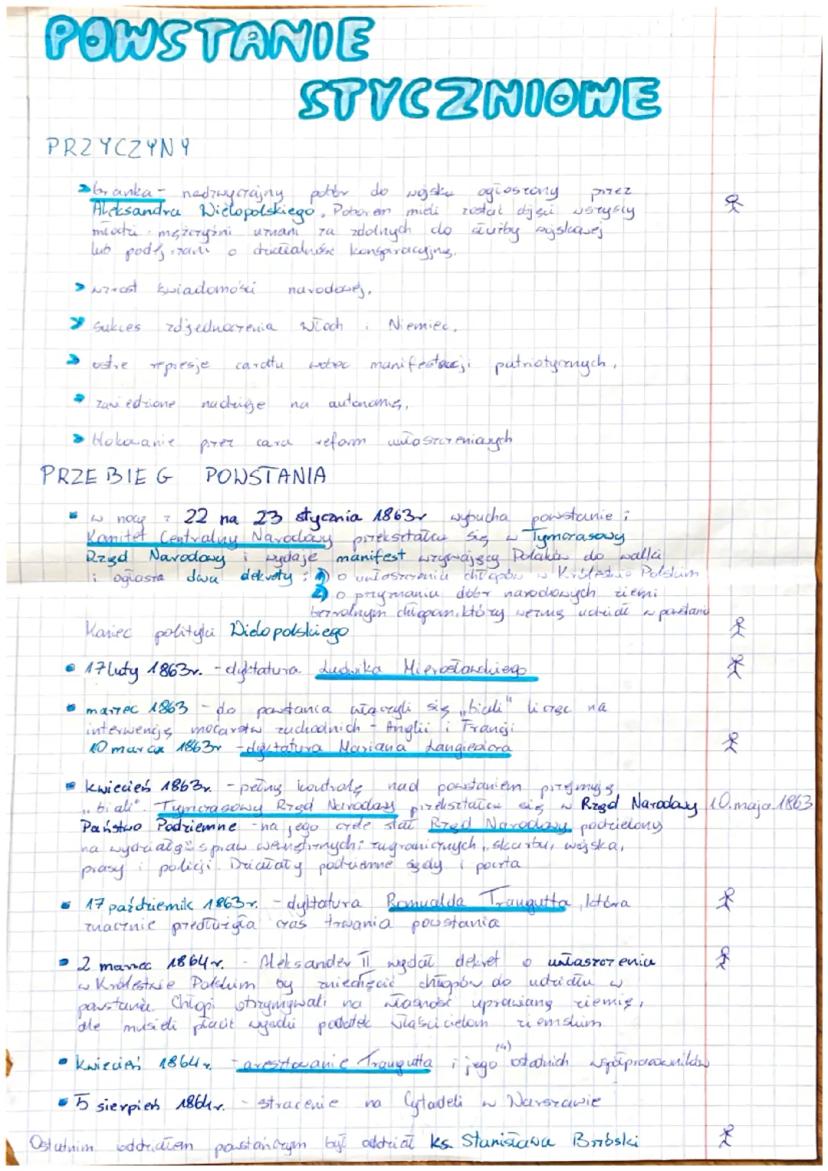 POWSTANIE
STYCZNIOWE
PRZYCZYNY
branka - nadzwyczajny pobór do wojska ogłoszony przez
Aleksandra Wielopolskiego. Poborem mieli zostać objęci wszyscy
młodzi mężczyźni uznani za zdolnych do służby wojskowej
lub podejrzani o działalność konspiracyjną.
wzrost świadomości narodowej,
sukces zdjednoczenia Włoch i Niemiec,
ostre represje caratu wobec manifestacji patriotycznych,
zawiedzione nadzieje na autonomię,
blokowanie przez cara reform uwłaszczeniowych
PRZEBIEG POWSTANIA
w nocy z 22 na 23 stycznia 1863r wybucha powstanie i
Komitet Centralny Narodowy przekształca się w Tymczasowy
Rząd Narodowy i wydaje manifest wzywający Polaków do walki
i ogłasza dwa dekrety: 1) o uwłaszczeniu chłopów w Królestwie Polskim
2) o przyznaniu dóbr narodowych ziemi
bezrolnym chłopom, którzy wezmą udział w powstaniu
Koniec polityki Wielopolskiego
17 luty 1863r. - dyktatura Ludwika Mierosławskiego
marzec 1863 - do powstania włączyli się "biali" licząc na
interwencję mocarstw zachodnich - Anglii i Francji
10 marca 1863r - dyktatura Mariana Langiewicza
kwiecień 1863r. - pełną kontrolę nad powstaniem przejmują
"biali". Tymczasowy Rząd Narodowy przekształca się w Rząd Narodowy 10.maja.1863
Państwo Podziemne - na jego czele stał Rząd Narodowy podzielony
na wydziały: spraw wewnętrznych, zagranicznych, skarbu, wojska,
prasy i policji. Działały podziemne sądy i poczta
17 październik 1863r. - dyktatura Romualda Traugutta, która
znacznie przedłużyła czas trwania powstania
2 marzec 1864r. - Aleksander II wydał dekret o uwłaszczeniu
w Królestwie Polskim by zniechęcić chłopów do udziału w
powstaniu. Chłopi otrzymywali na własność uprawianą ziemię,
ale musieli płacić podatek właścicielom ziemskim
kwiecień 1864r. - aresztowanie Traugutta i jego (4) ostatnich współpracowników
5 sierpień 1864r. - stracenie na Cytadeli w Warszawie
Ostatnim oddziałem powstańczym był oddział ks. Stanisława Brzóski